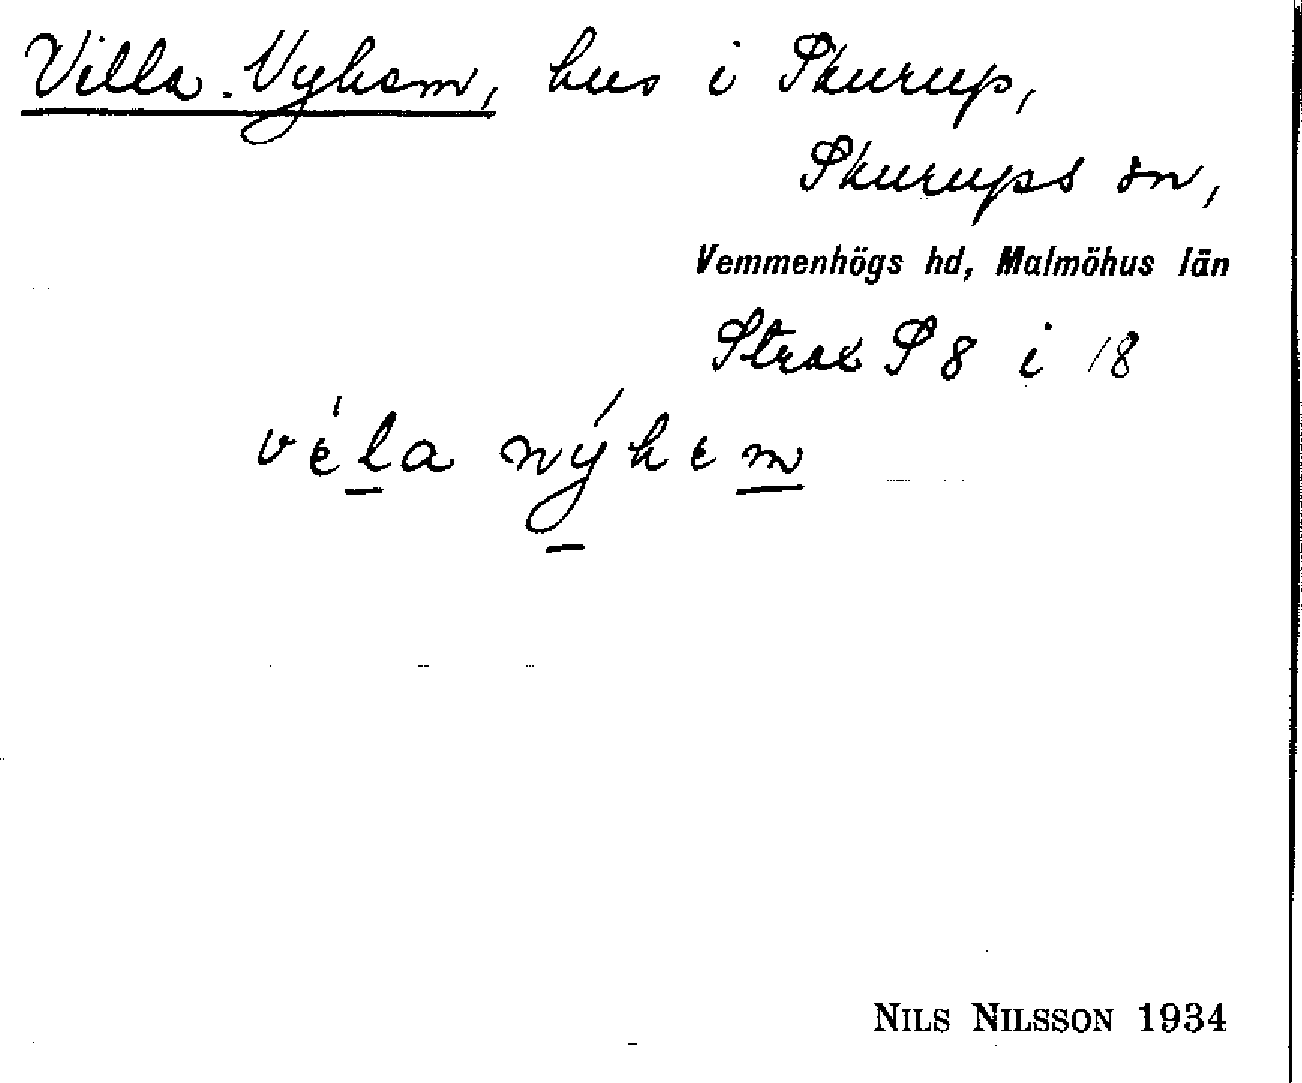 Villa Nyhem, hus i Skurup,
Skurups sn,
Vemmenhögs hd, Malmöhus län
Strax S 8 i 18
véla nýhem
NILS NILSSON 1934